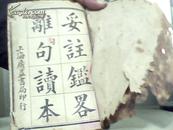 妥註鑑畧
離句讀本
上海廣益書局印行